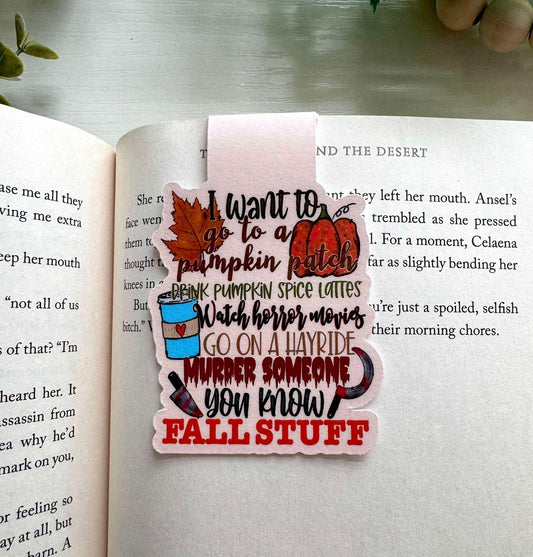 ase me all they
ving me extra
eep her mouth
"not all of us
s of that? "I'm
heard her. It
assassin from
ea why he'd
mark on you,
or feeling so
ay at all, but
barn. A
T ND THE DESERT
She re nt they left her mouth. Ansel's
face wen trembled as she pressed
them to l. For a moment, Celaena
thought t far as slightly bending her
knees in a
But u're just a spoiled, selfish
bitch." W their morning chores.
I want to
go to a
pumpkin patch
DRINK PUMPKIN SPICE LATTES
Watch horror movies
GO ON A HAYRIDE
MURDER SOMEONE
YOU KNOW
FALL STUFF